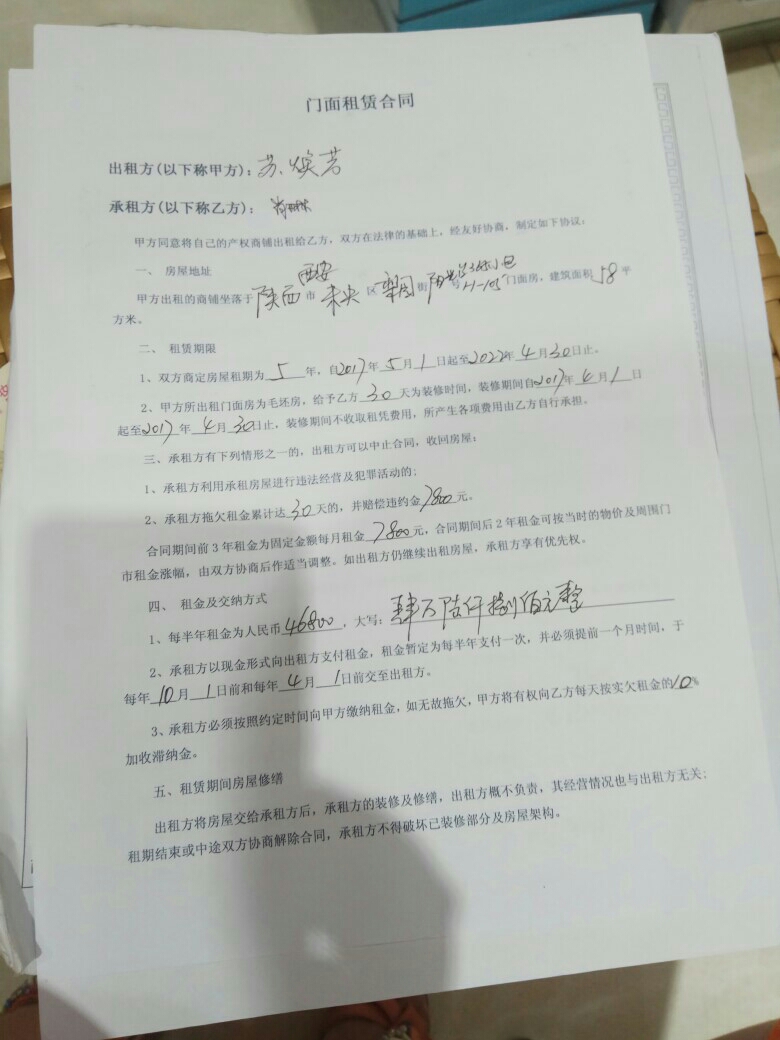 门面租赁合同
出租方(以下称甲方)：苏焕芳
承租方(以下称乙方)：
甲方同意将自己的产权商铺出租给乙方，双方在法律的基础上，经友好协商，制定如下协议：
一、 房屋地址
甲方出租的商铺坐落于陕西西安市未央区梨园街号门面房，建筑面积58平
方米。
二、 租赁期限
1、双方商定房屋租期为5年，自2017年5月1日起至2022年4月30日止。
2、甲方所出租门面房为毛坯房，给予乙方30天为装修时间，装修期间自2017年4月1日
起至2017年4月30日止，装修期间不收取租凭费用，所产生各项费用由乙方自行承担。
三、承租方有下列情形之一的，出租方可以中止合同，收回房屋：
1、承租方利用承租房屋进行违法经营及犯罪活动的；
2、承租方拖欠租金累计达30天的，并赔偿违约金7800元。
合同期间前3年租金为固定金额每月租金7800元，合同期间后2年租金可按当时的物价及周围门
市租金涨幅，由双方协商后作适当调整。如出租方仍继续出租房屋，承租方享有优先权。
四、 租金及交纳方式
1、每半年租金为人民币46800，大写：肆万陆仟捌佰元整
2、承租方以现金形式向出租方支付租金，租金暂定为每半年支付一次，并必须提前一个月时间，于
每年10月1日前和每年4月1日前交至出租方。
3、承租方必须按照约定时间向甲方缴纳租金，如无故拖欠，甲方将有权向乙方每天按实欠租金的10%
加收滞纳金。
五、租赁期间房屋修缮
出租方将房屋交给承租方后，承租方的装修及修缮，出租方概不负责，其经营情况也与出租方无关；
租期结束或中途双方协商解除合同，承租方不得破坏已装修部分及房屋架构。